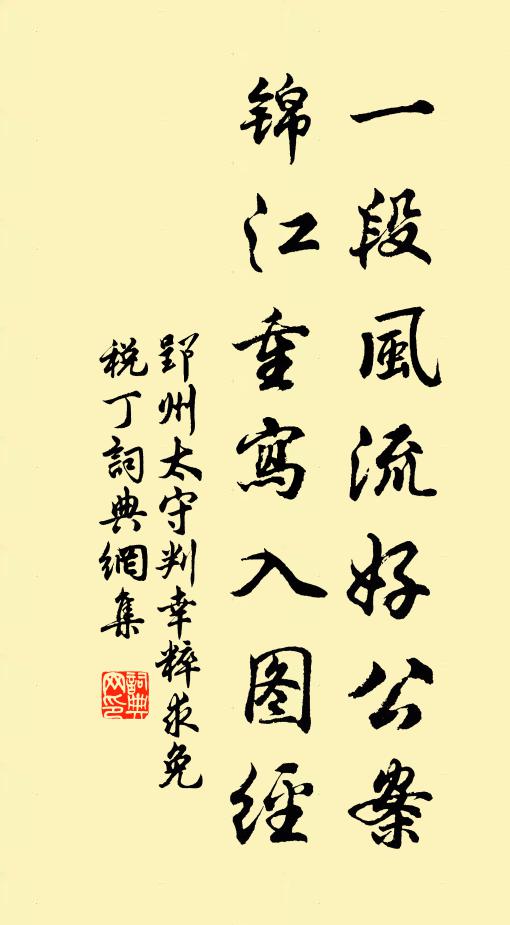 一段風流好公案
锦江重寫入图經
郢州太守判幸粹求免
税丁詞典網集
詞典网印